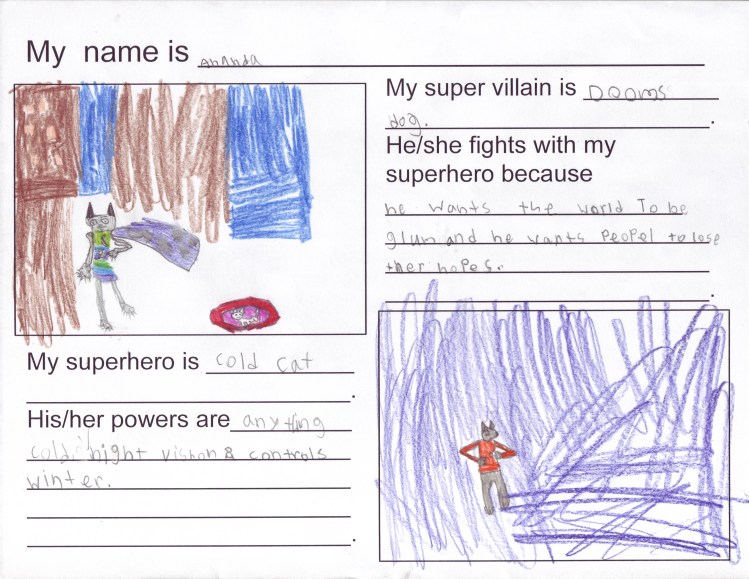 My name is Ananda
My superhero is cold cat
.
His/her powers are anything
cold, night vishon & controls
winter.
.
My super villain is Dooms
dog. .
He/she fights with my
superhero because
he wants the world To be
glum and he vants Peopel to lose
ther hopes.
.